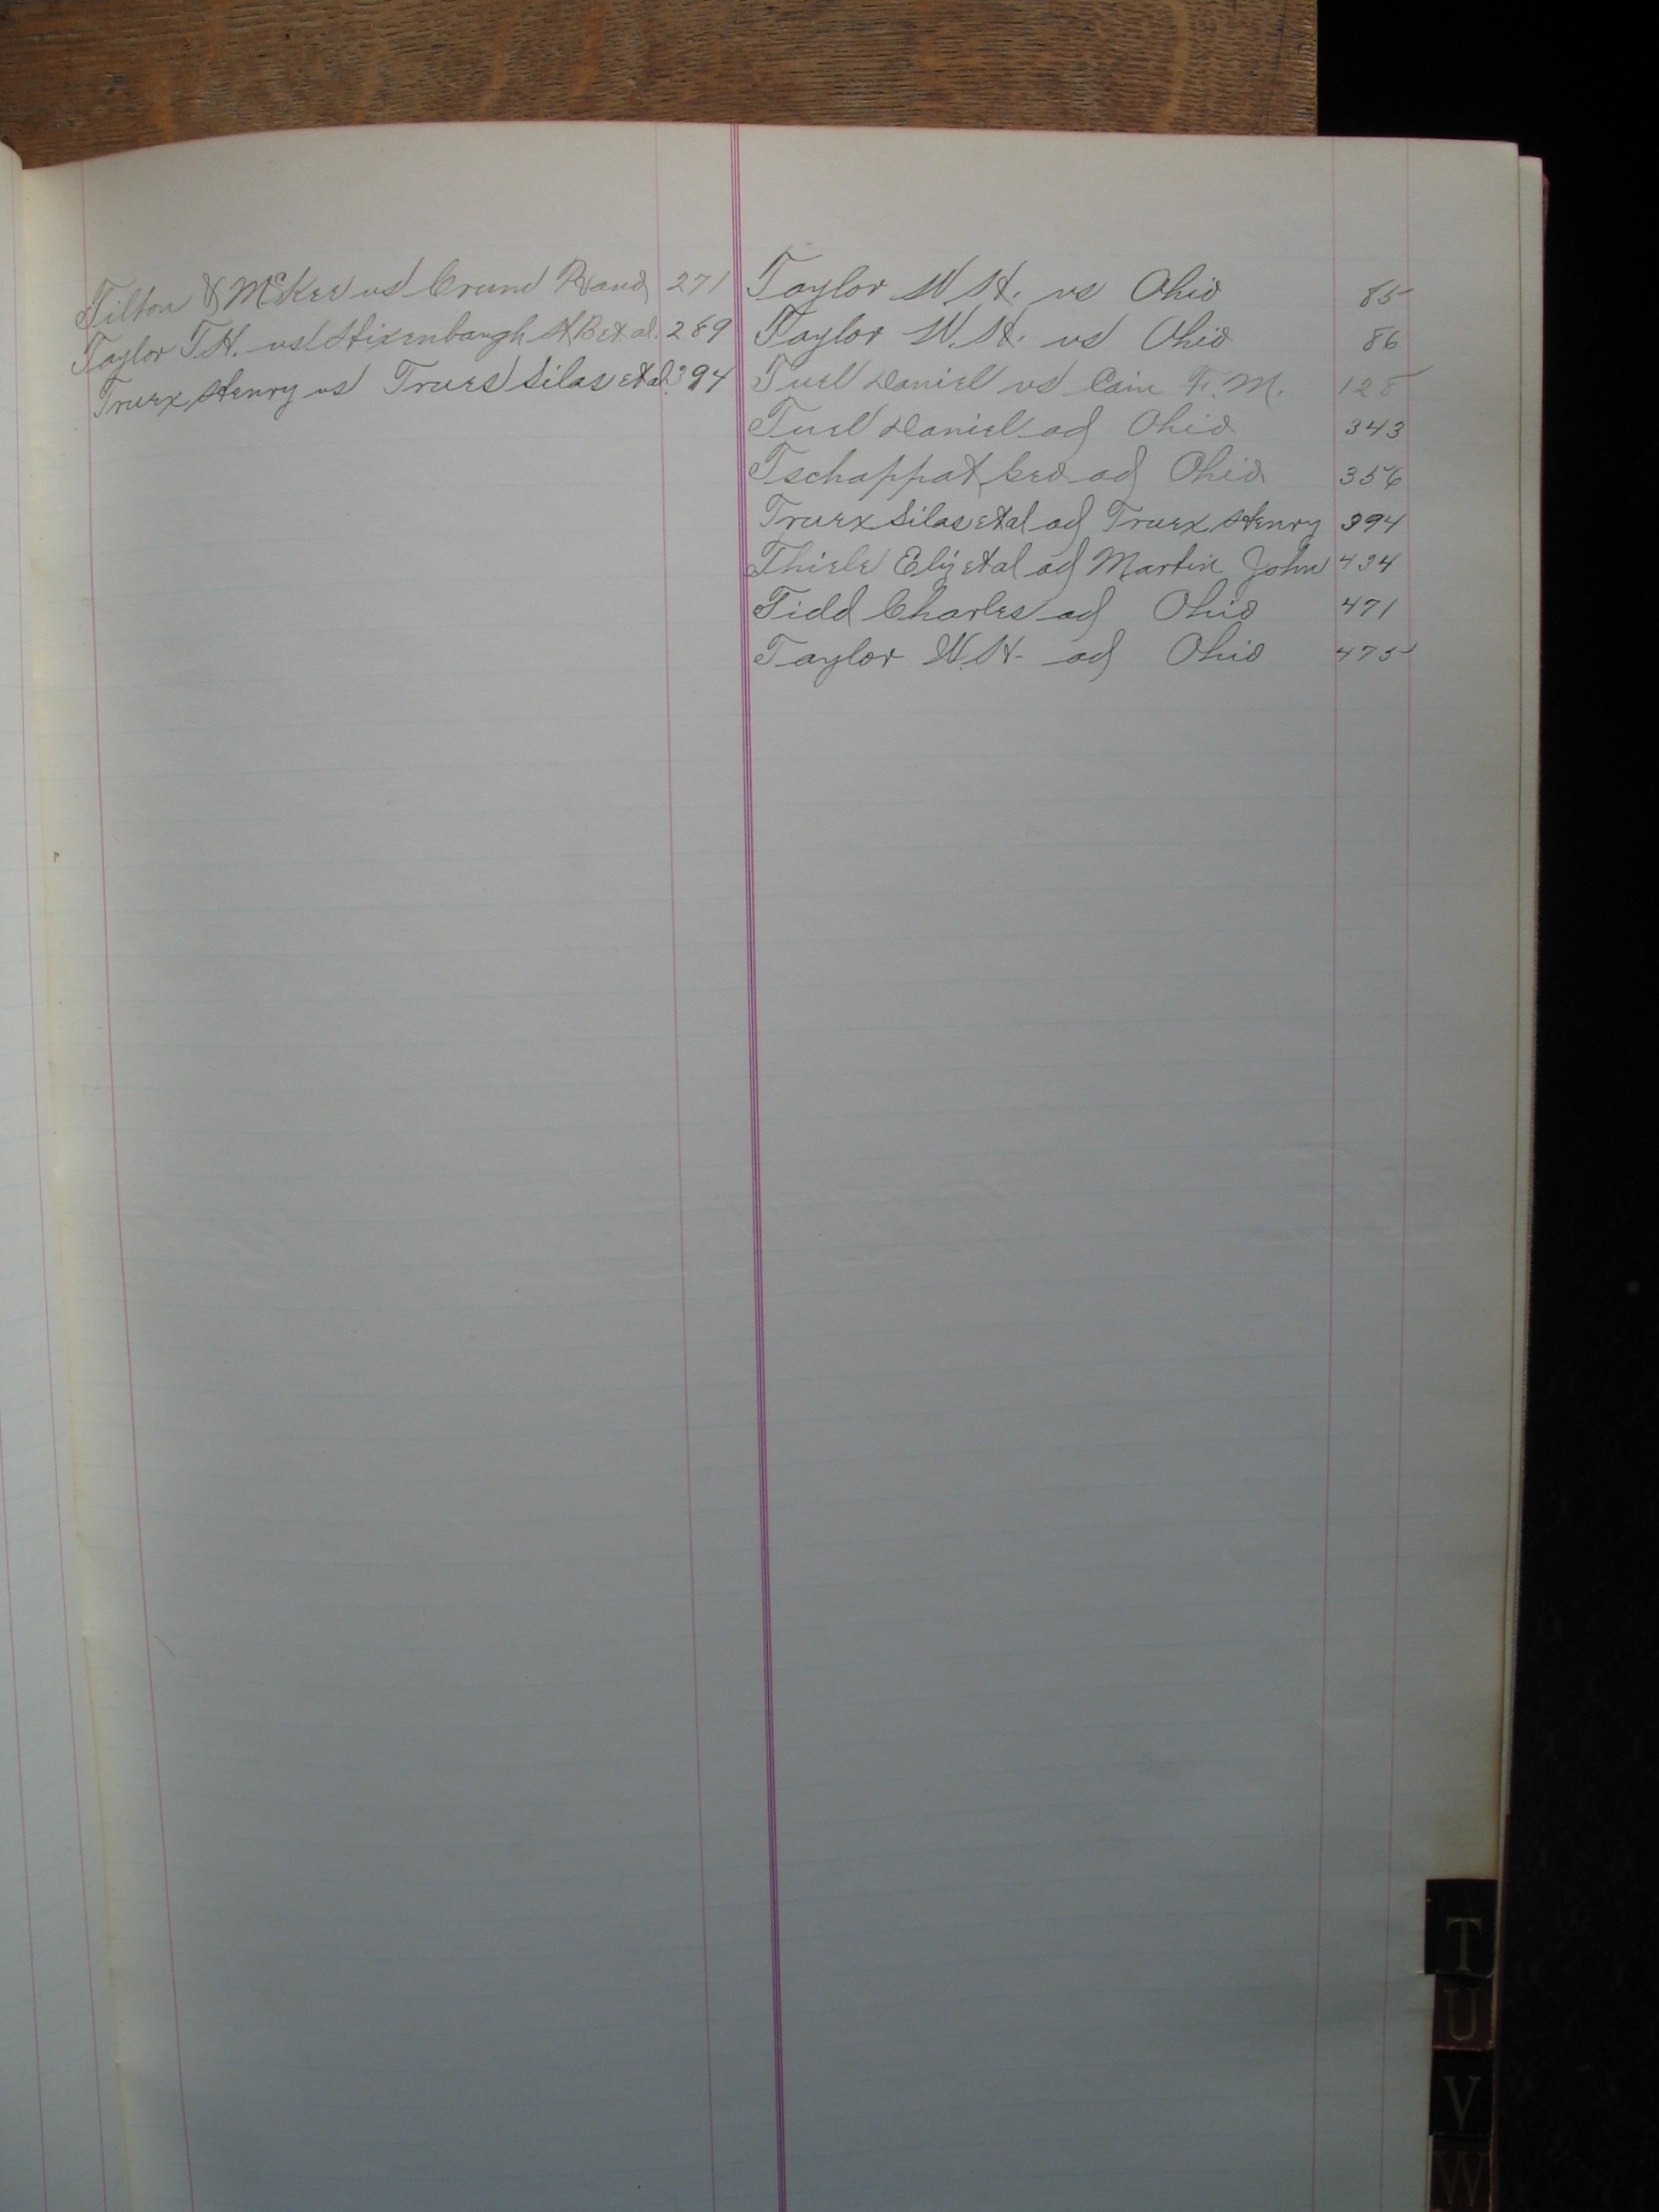 Tilton & McKee vs Crum Rand 271
Taylor T.H. vs Hixenbaugh A B et al. 289
Truex Henry vs Trues Silas et al. 394
Taylor W. H. vs Ohio 85
Taylor W. H. vs Ohio 86
Tuel Daniel vs Cain F. M. 128
Tuel Daniel ad Ohio 343
Tschappat Geo ad Ohio 356
Truex Silas et al ad Truex Henry 394
Thiele Eliz et al ad Martin John 434
Tidd Charles ad Ohio 471
Taylor W. H. ad Ohio 475
T
U
V
W